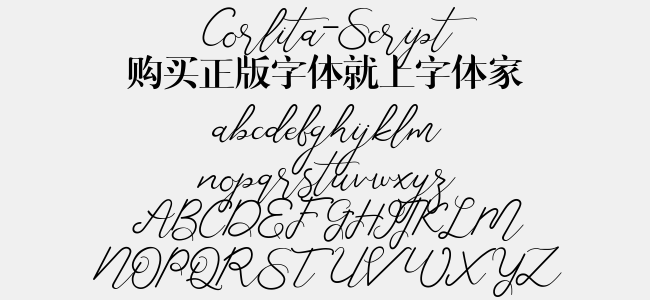 Corlita-Script
购买正版字体就上字体家
abcdefghijklm
nopqrstuvwxyz
ABCDEFGHIJKLM
NOPQRSTUVWXYZ